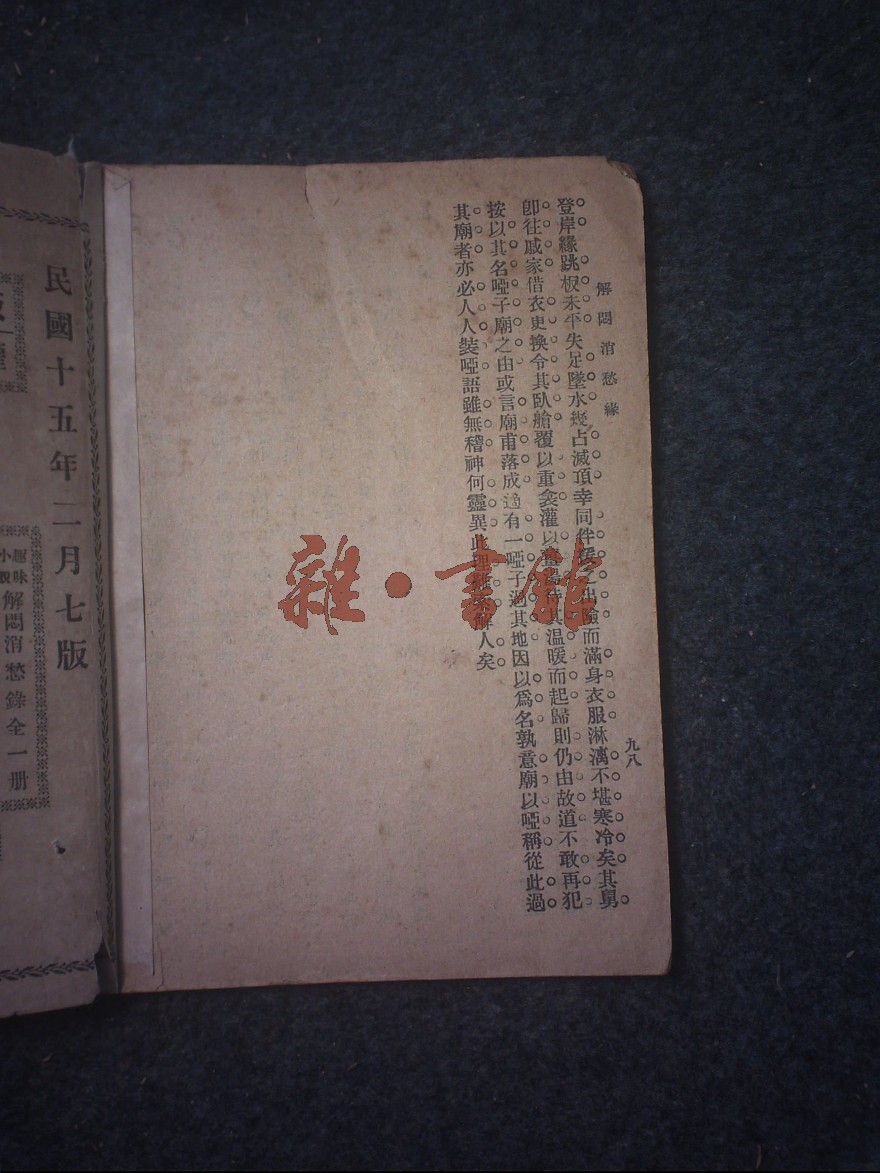 解悶消愁緣
九八
登岸緣跳板未平失足墜水幾占滅頂幸同伴援之出險而滿身衣服淋漓不堪寒冷矣其舅
卽往戚家借衣更換令其臥艙覆以重衾灌以薑湯待其温暖而起歸則仍由故道不敢再犯
按以其名啞子廟之由或言廟甫落成適有一啞子過其地因以爲名孰意廟以啞稱從此過
其廟者亦必人人裝啞語雖無稽神何靈異此理解人矣
雜·書館
民國十五年二月七版
趣味
小說
解悶消愁錄全一册